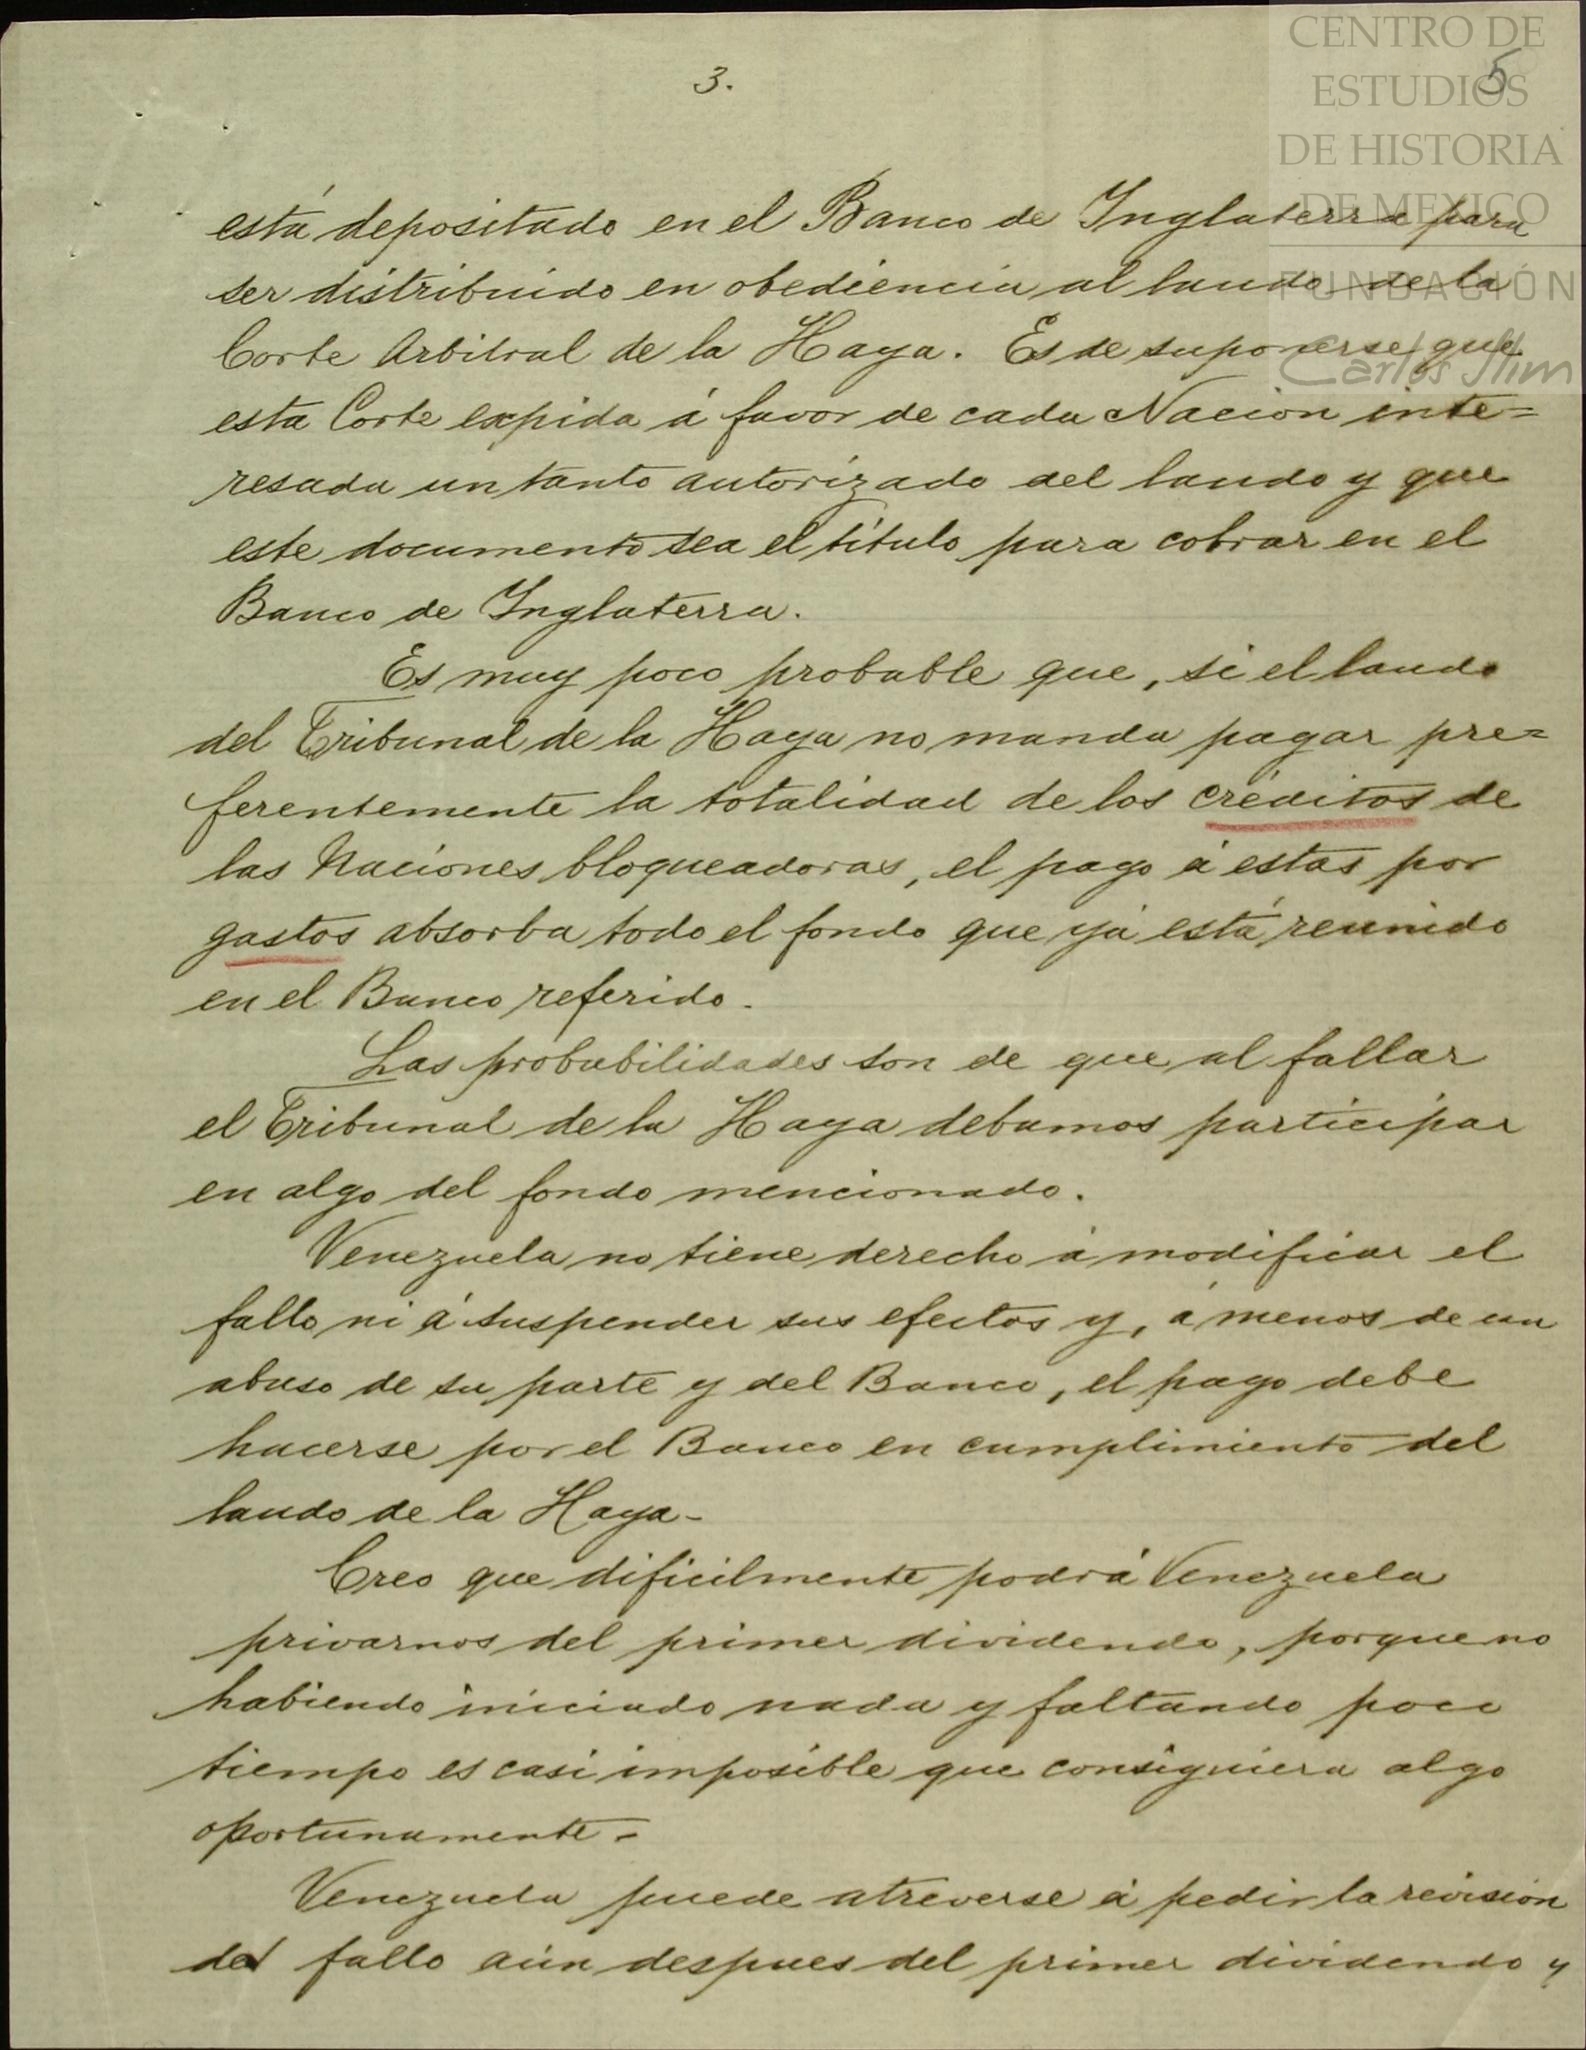 CENTRO DE
ESTUDIOS
DE HISTORIA
DE MEXICO
FUNDACIÓN
Carlos Slim
3.
5
está depositado en el Banco de Inglaterra para
ser distribuido en obediencia al laudo de la
Corte Arbitral de la Haya. Es de suponerse que
esta Corte expida á favor de cada Nacion inte=
resada un tanto autorizado del laudo y que
este documento sea el título para cobrar en el
Banco de Inglaterra.
Es muy poco probable que, si el laudo
del Tribunal de la Haya no manda pagar pre=
ferentemente la totalidad de los créditos de
las Naciones bloqueadoras, el pago á estas por
gastos absorba todo el fondo que yá está reunido
en el Banco referido.
Las probabilidades son de que al fallar
el Tribunal de la Haya debamos participar
en algo del fondo mencionado.
Venezuela no tiene derecho á modificar el
fallo ni á suspender sus efectos y, á menos de un
abuso de su parte y del Banco, el pago debe
hacerse por el Banco en cumplimiento del
laudo de la Haya-
Creo que dificilmente podrá Venezuela
privarnos del primer dividendo, porque no
habiendo iniciado nada y faltando poco
tiempo es casi imposible que consiguiera algo
oportunamente-
Venezuela puede atreverse á pedir la revisión
del fallo aún despues del primer dividendo y